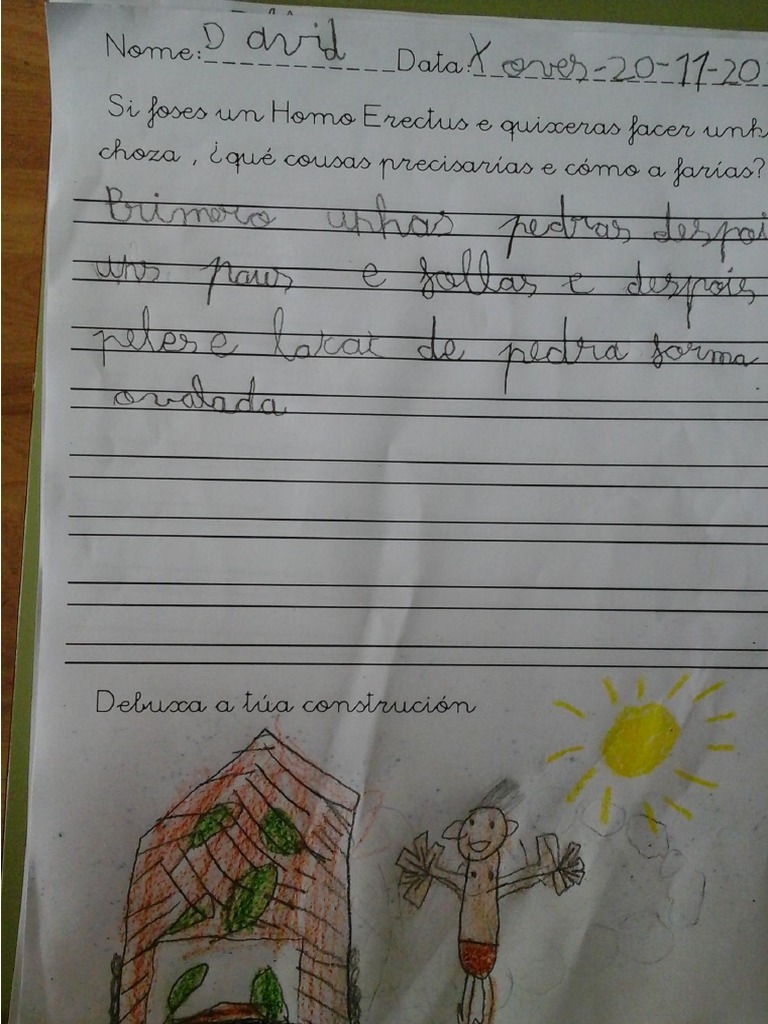 Nome: David Data: Xoves-20-11-20
Si foses un Homo Erectus e quixeras facer unh
choza , ¿qué cousas precisarías e cómo a farías?
Primero unhas pedras despoi
uns paus e follas e despois
peles e larar de pedra forma
ovalada
Debuxa a túa construción